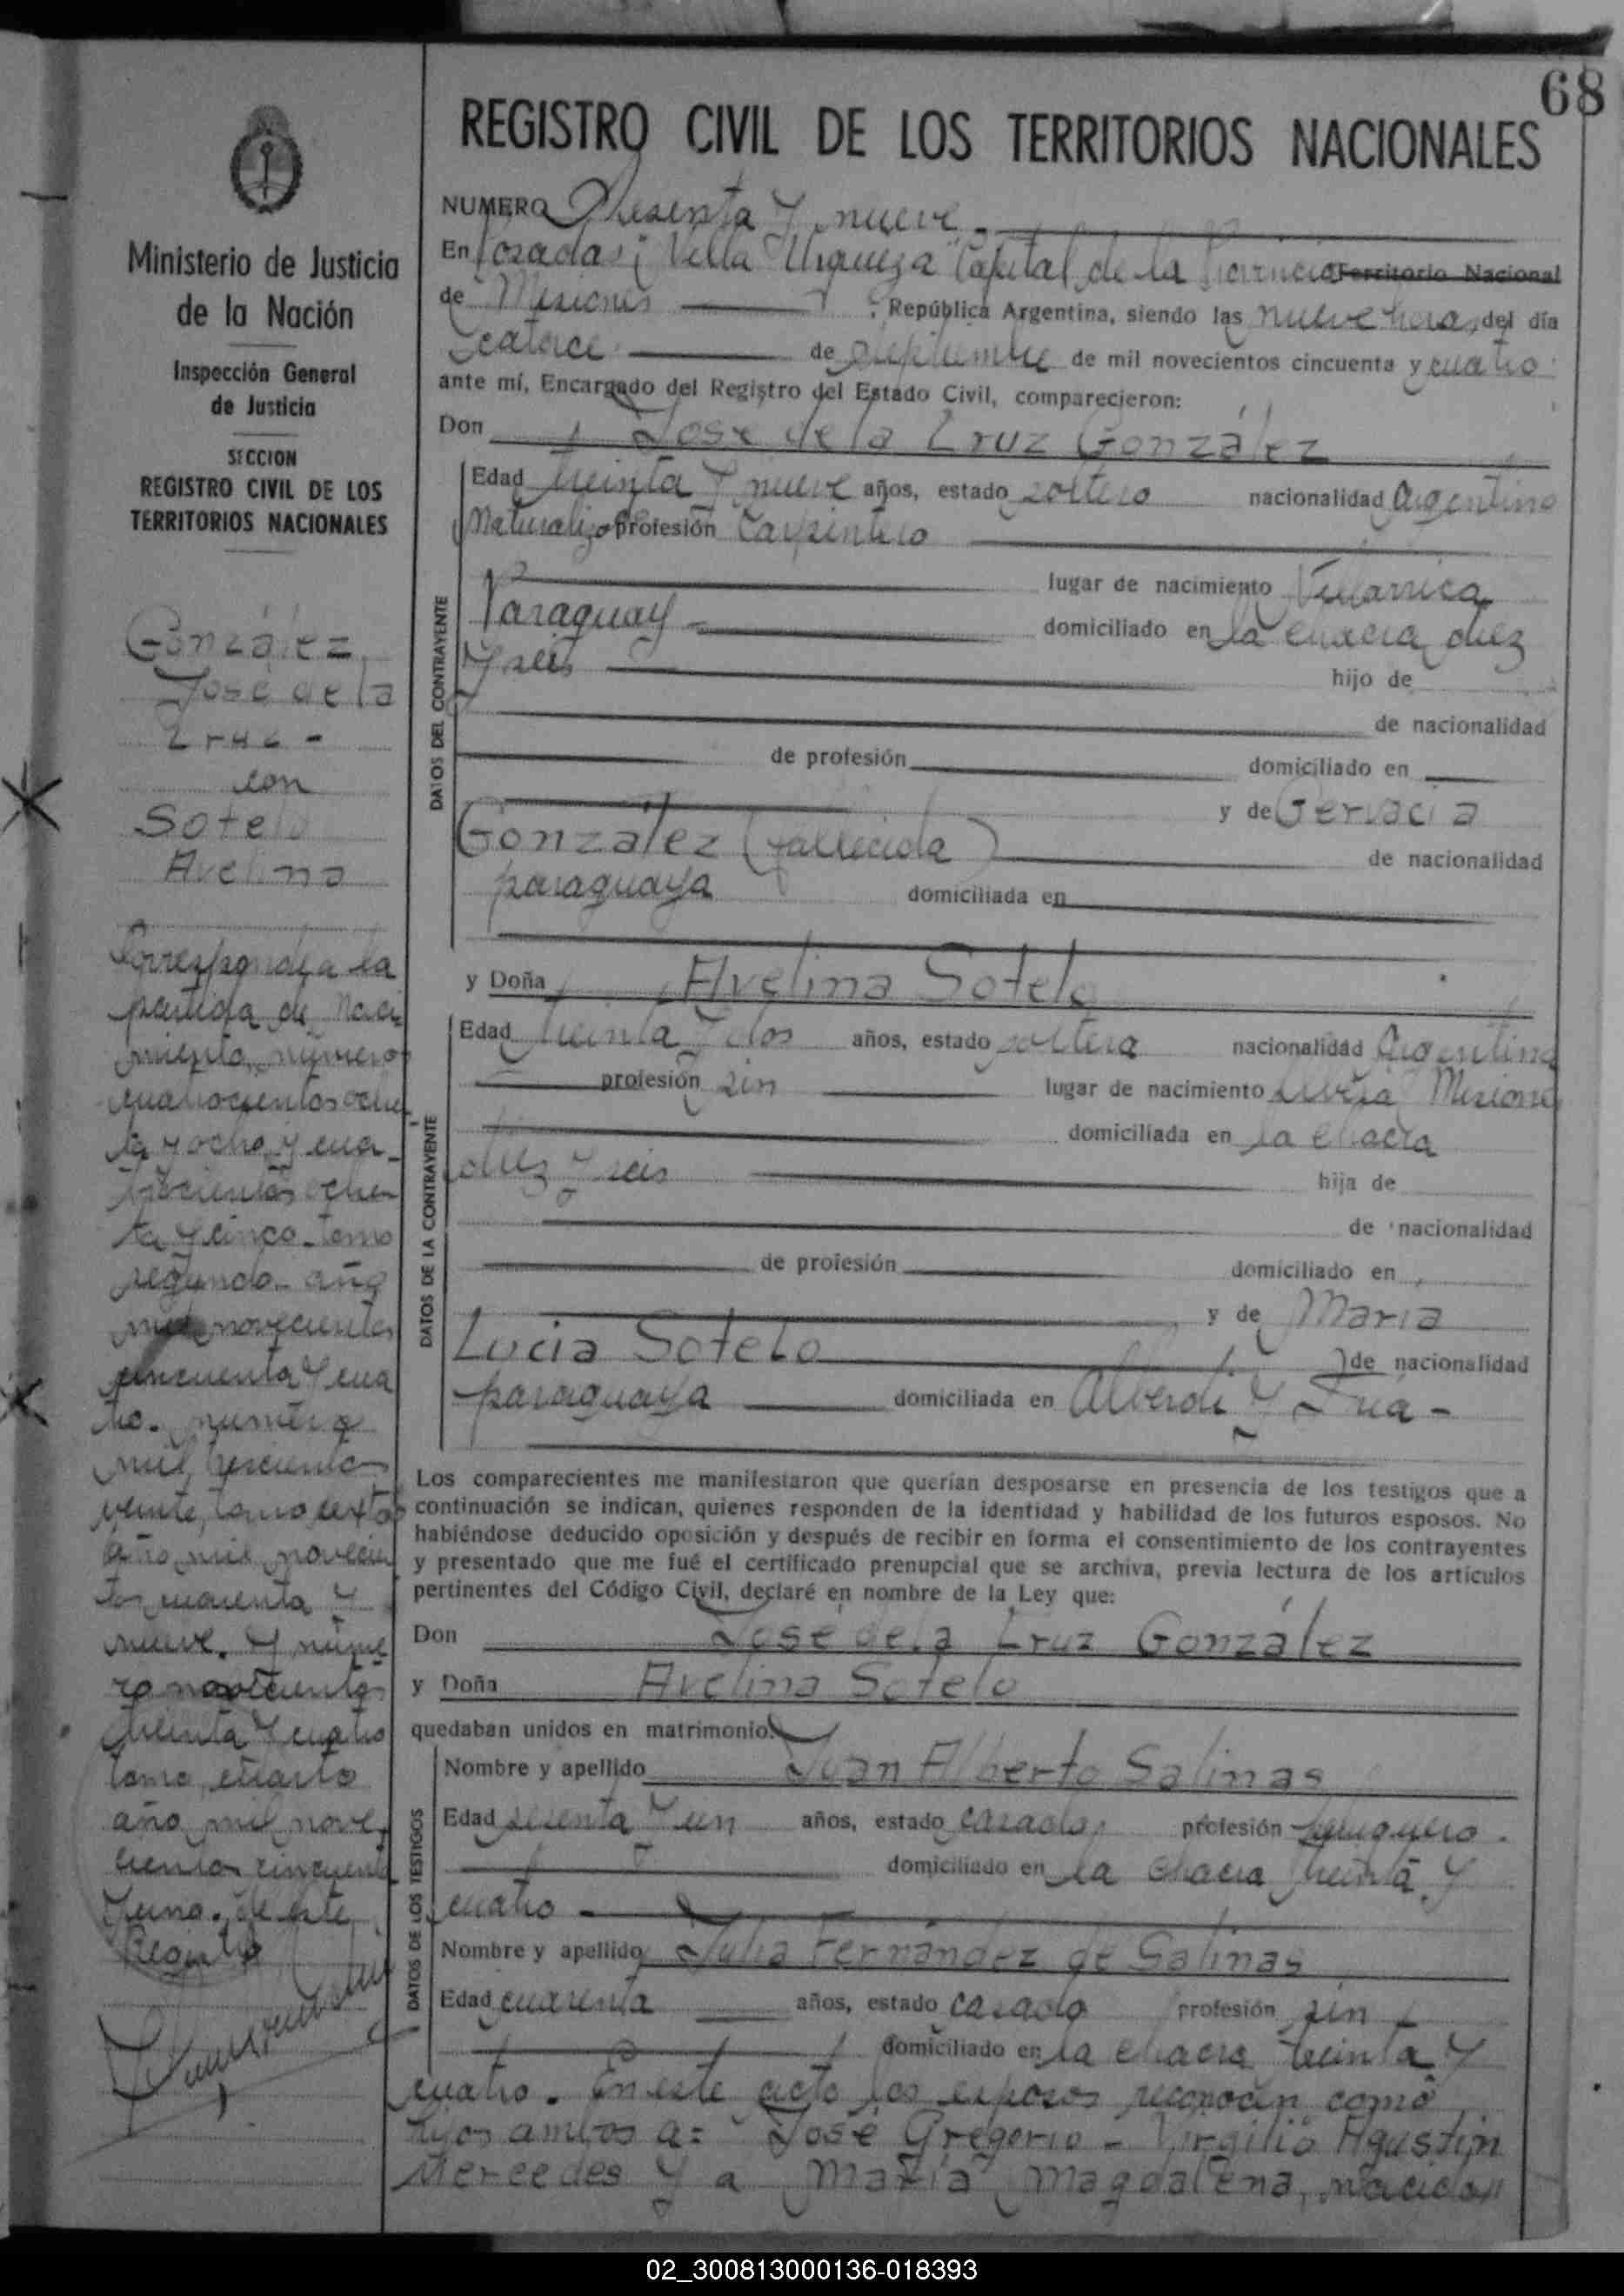 68
REGISTRO CIVIL DE LOS TERRITORIOS NACIONALES
Ministerio de Justicia
de la Nación
Inspección General
de Justicia
SECCION
REGISTRO CIVIL DE LOS
TERRITORIOS NACIONALES
González
José de la
Cruz -
con
Sotelo
Avelina
Corresponde a la
partida de Naci
miento, número
cuatrocientos ochen
ta y ocho y cua-
trocientos ochen
ta y cinco tomo
segundo año
mil novecientos
cincuenta y cua
tro. número
mil trescientos
veinte, tomo sexto
año mil novecien
tos cuarenta y
nueve. Y núme
ro novecientos
treinta y cuatro
tomo cuarto
año mil nove
cientos cincuenta
y uno. de este
Registro
NUMERO Sesenta y nueve
En Posadas, Villa Urquiza Capital de la Provincia Territorio Nacional
de Misiones República Argentina, siendo las nueve horas del día
catorce de septiembre de mil novecientos cincuenta y cuatro
ante mí, Encargado del Registro del Estado Civil, comparecieron:
Don José de la Cruz González
DATOS DEL CONTRAYENTE
Edad treinta y nueve años, estado soltero nacionalidad Argentino
Naturalizo profesión Carpintero
lugar de nacimiento Villarrica
Paraguay domiciliado en la chacra diez
y seis hijo de
de nacionalidad
de profesión domiciliado en
y de Gervacia
González (fallecida) de nacionalidad
paraguaya domiciliada en
y Doña Avelina Sotelo
DATOS DE LA CONTRAYENTE
Edad treinta y dos años, estado soltera nacionalidad Argentina
profesión sin lugar de nacimiento Misiones
domiciliada en la chacra
diez y seis hija de
de nacionalidad
de profesión domiciliado en
y de María
Lucia Sotelo de nacionalidad
paraguaya domiciliada en Alberdi y
Los comparecientes me manifestaron que querían desposarse en presencia de los testigos que a
continuación se indican, quienes responden de la identidad y habilidad de los futuros esposos. No
habiéndose deducido oposición y después de recibir en forma el consentimiento de los contrayentes
y presentado que me fué el certificado prenupcial que se archiva, previa lectura de los artículos
pertinentes del Código Civil, declaré en nombre de la Ley que:
Don José de la Cruz González
y Doña Avelina Sotelo
quedaban unidos en matrimonio.
DATOS DE LOS TESTIGOS
Nombre y apellido Juan Alberto Salinas
Edad sesenta y un años, estado casado profesión peluquero.
domiciliado en la chacra treinta y
cuatro -
Nombre y apellido Julia Fernández de Salinas
Edad cuarenta años, estado casado profesión sin
domiciliado en la chacra treinta y
cuatro. En este acto los esposos reconocen como
hijos ambos a: José Gregorio - Virgilio Agustín
Mercedes y a María Magdalena, nacidos
02_300813000136-018393